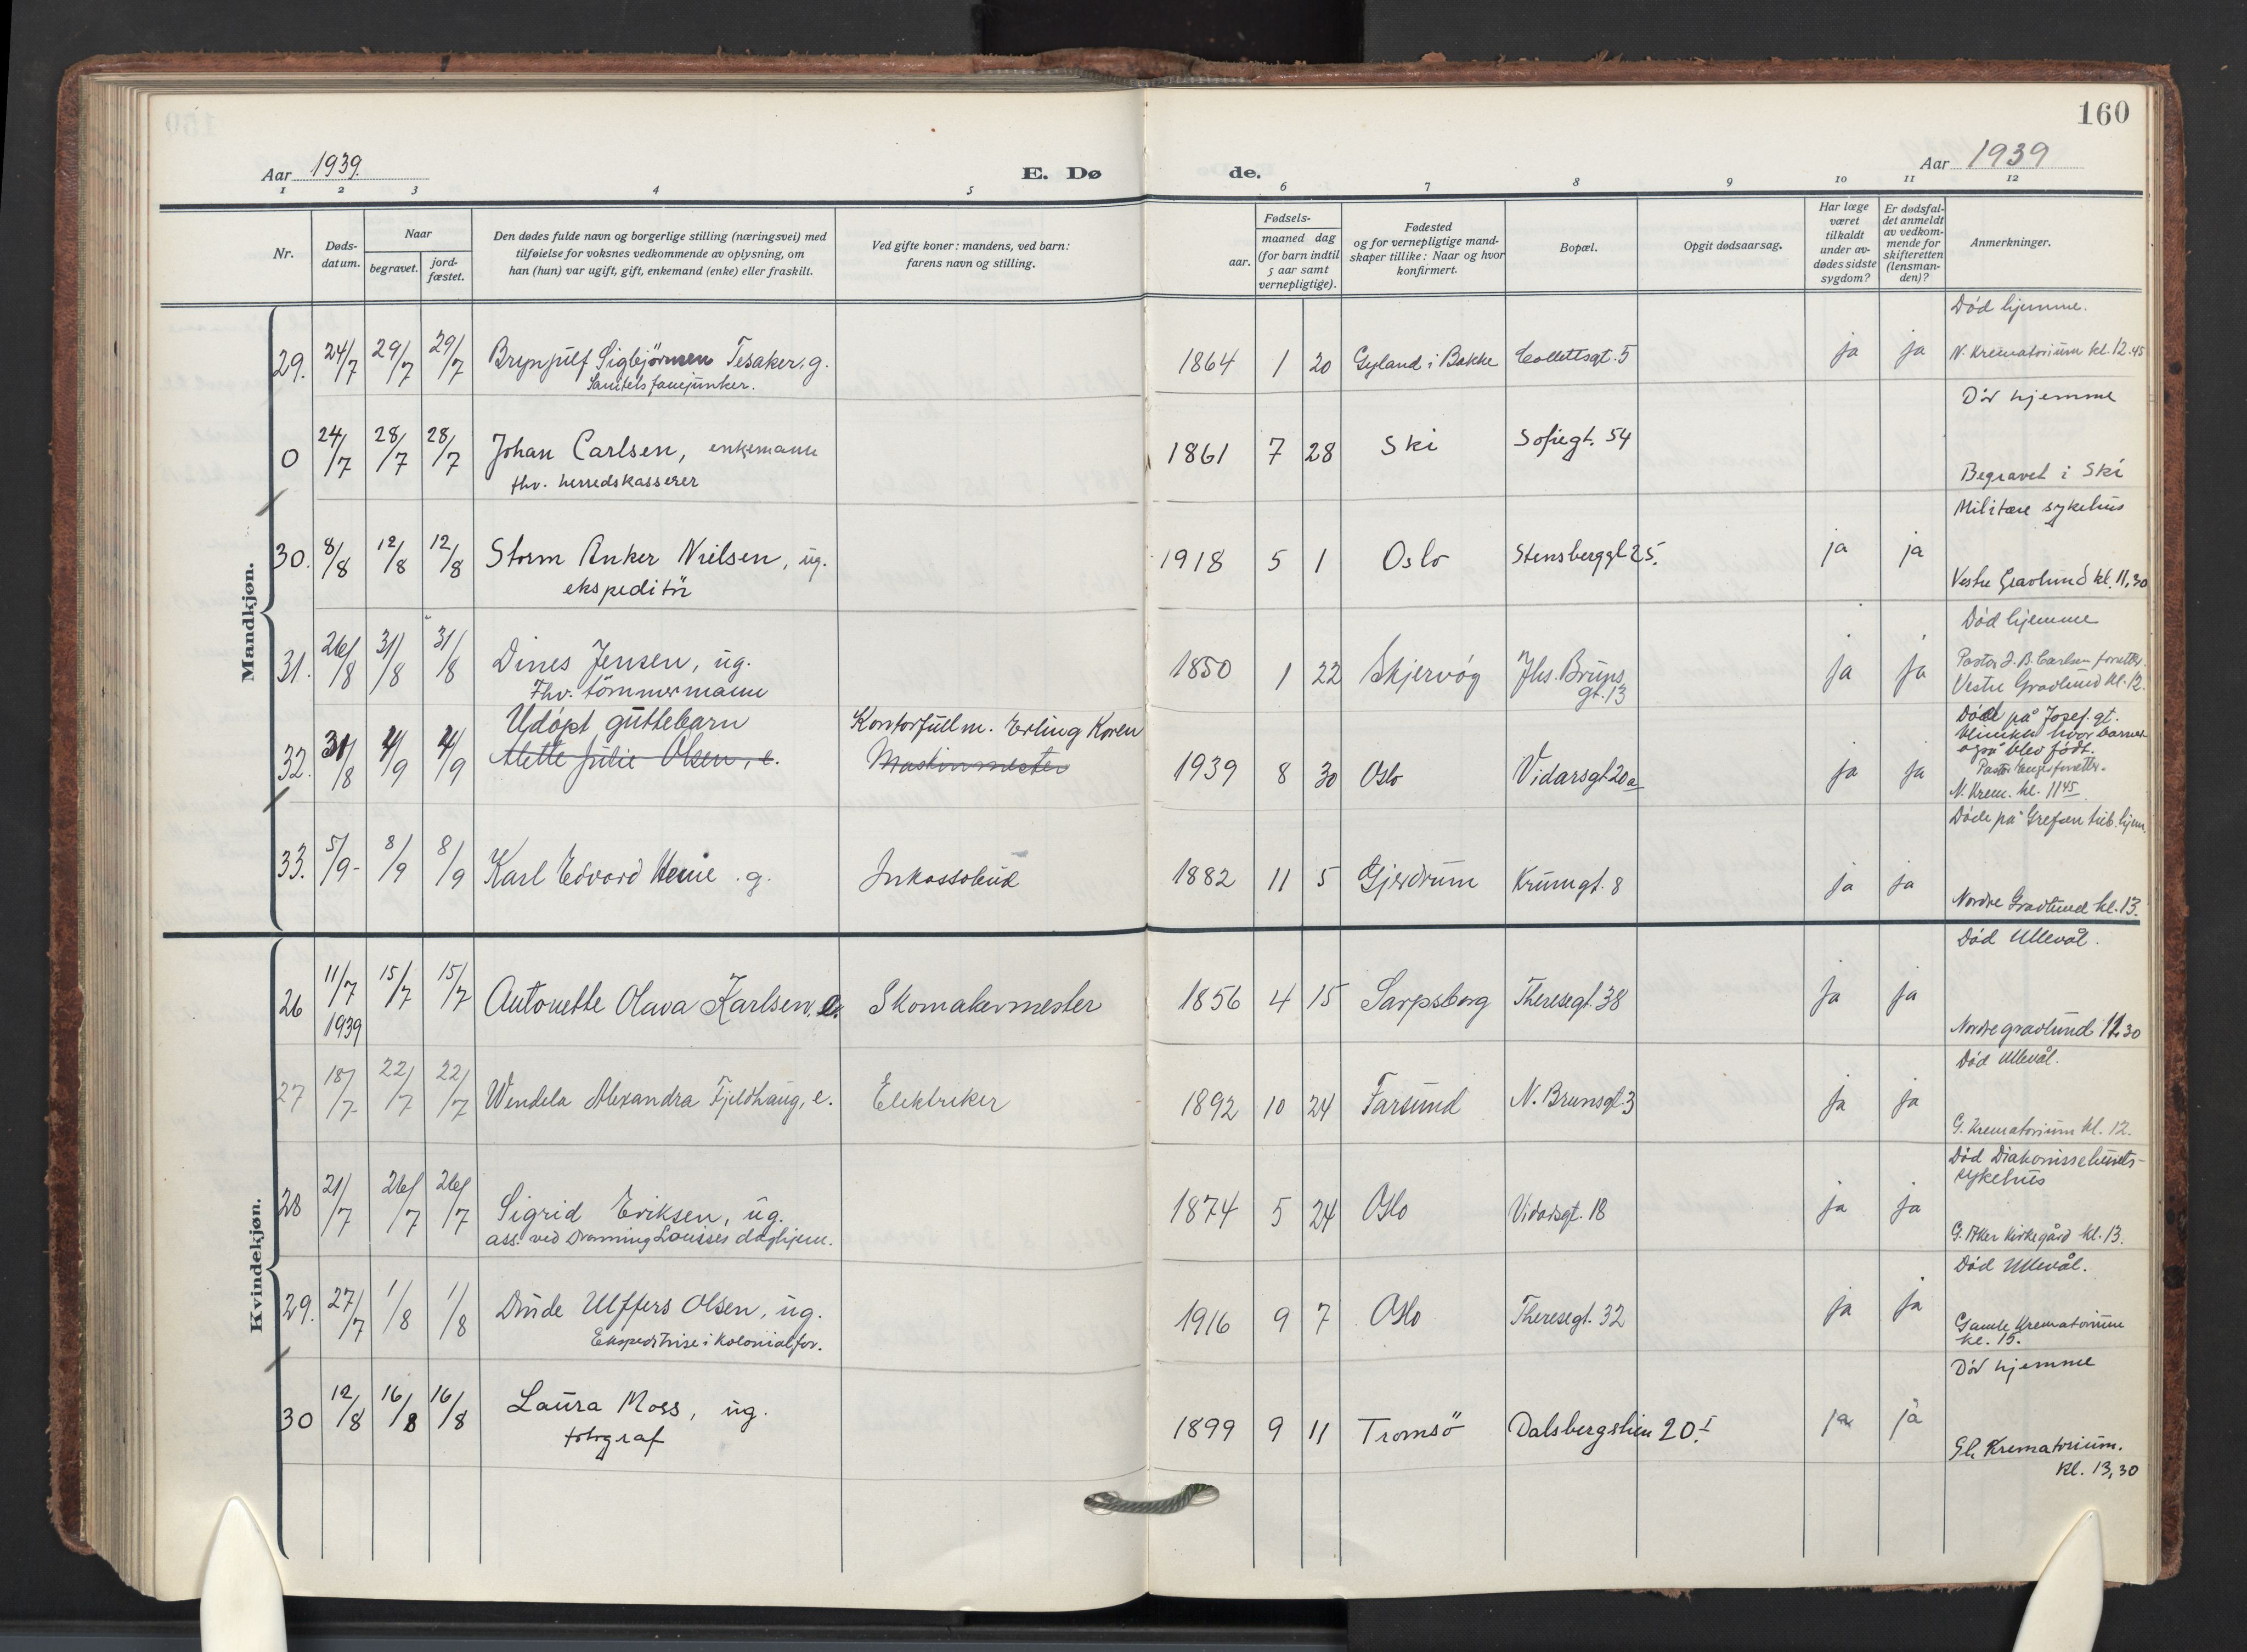 160
Aar 1939.
E. Dø
de.
Aar 1939
1 2 3 4 5 6 7 8 9 10 11 12
Nr.
Døds-
datum.
Naar
begravet.
jord-
fæstet.
Den dødes fulde navn og borgerlige stilling (næringsvei) med
tilføielse for voksnes vedkommende av oplysning, om
han (hun) var ugift, gift, enkemand (enke) eller fraskilt.
Ved gifte koner: mandens, ved barn:
farens navn og stilling.
Fødsels-
aar.
maaned dag
(for barn indtil
5 aar samt
vernepligtige).
Fødested
og for vernepligtige mand-
skaper tillike: Naar og hvor
konfirmert.
Bopæl.
Opgit dødsaarsag.
Har læge
været
tilkaldt
under av-
dødes sidste
sygdom?
Er dødsfal-
det anmeldt
av vedkom-
mende for
skifteretten
(lensman-
den)?
Anmerkninger.
Mandkjøn.
Død hjemme.
29. 24/7 29/7 29/7 Brynjulf Sigbjörnsen Tesaker, g. 1864 1 20 Gyland i Bakke Collettsgt. 5 ja ja N. Krematorium kl. 12.45
Sanitetsfanejunker.
Död hjemme
0 24/7 28/7 28/7 Johan Carlsen, enkemann 1861 7 28 Ski Sofiegt. 54
fhv. herredskasserer
Begravet i Ski
Militære sykehus
30. 8/8 12/8 12/8 Storm Anker Nielsen, ug. 1918 5 1 Oslo Stensberggt 25. ja ja
ekspeditör
Vestre Gravlund kl. 11,30
Død hjemme
31. 26/8 31/8 31/8 Dines Jensen, ug. 1850 1 22 Skjervøy Jhs. Bruns gt. 13 ja ja
Fhv. tömmermann
Pastor J. B. Carlsen forretter.
Vestre Gravlund kl. 12.
Udøpt guttebarn Kontorfullm. Erling Koren
32. 31/8 4/9 4/9 Alette Julie Olsen, e. Maskinmester 1939 8 30 Oslo Vidarsgt 20a ja ja
Død på Josef. gt.
klinikk hvor barnet
også blev født.
N. Krem. kl. 11 45
Døde på Grefsen tub. hjem.
33. 5/9 8/9 8/9 Karl Edvard Heine . g. Inkassobud 1882 11 5 Gjerdrum Krumgt. 8 ja ja
Nordre Gravlund kl. 13.
Kvindekjøn.
Død Ullevål.
26 11/7 1939 15/7 15/7 Antonette Olava Karlsen, e. Skomakermester 1856 4 15 Sarpsborg Theresegt. 38 ja ja
Nordre gravlund 12.30
Død Ullevål.
27 18/7 22/7 22/7 Wendela Alexandra Fjeldhaug, e. Elektriker 1892 10 24 Farsund N. Brunsgt. 3 ja ja
G. Krematorium kl. 12.
Død Diakonissehusets-
sykehus
28 21/7 26/7 26/7 Sigrid Eriksen, ug. 1874 5 24 Oslo Vidarsgt. 18 ja ja
ass. ved Dronning Louises daghjem.
G. Aker kirkegård kl. 13.
Død Ullevål.
29. 27/7 1/8 1/8 Dinde Ulffers Olsen, ug. 1916 9 7 Oslo Theresegt. 32 ja ja
Ekspeditrise i kolonialfor.
Gamle Krematorium
kl. 15.
Död hjemme
30 12/8 16/8 16/8 Laura Moss, ug. 1899 9 11 Tromsö Dalsbergstien 20.I ja ja
fotograf
Gl. Krematorium.
kl. 13,30